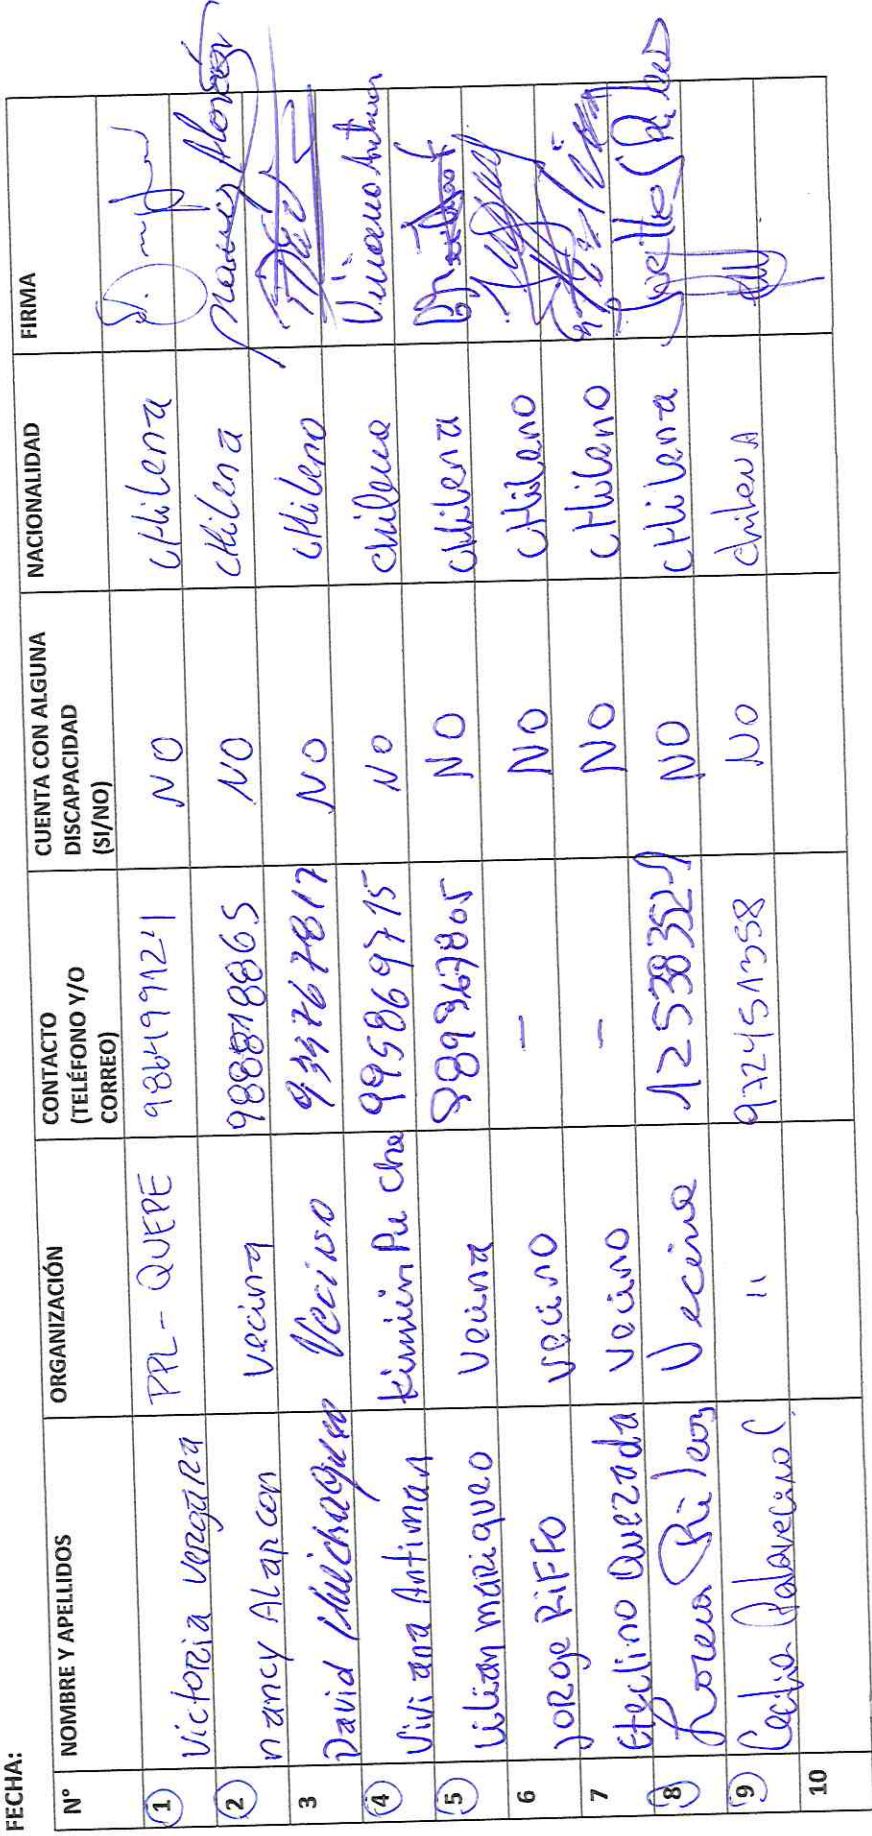 FECHA:
N° NOMBRE Y APELLIDOS ORGANIZACIÓN CONTACTO (TELÉFONO Y/O CORREO) CUENTA CON ALGUNA DISCAPACIDAD (SI/NO) NACIONALIDAD FIRMA
1 Victoria Vergara PPL - QUEPE 986499124 NO cHilena
2 nancy Alarcon Vecina 988818865 NO cHilena Nancy Alarcón
3 David Huichaqueo Vecino 933767817 NO cHileno
4 Viviana Antiman Kimün Pu Che 995869715 NO chilena Viviana Antiman
5 Lilian mariqueo Vecina 989967805 NO cHilena
6 Jorge RiFFo Vecino - NO cHileno
7 Eteclino Quezada Vecino - NO cHileno
8 Lorena Rileos Vecina 125383521 NO cHilena
9 Cecilia Palavecino C. " 972451358 No chilenA
10